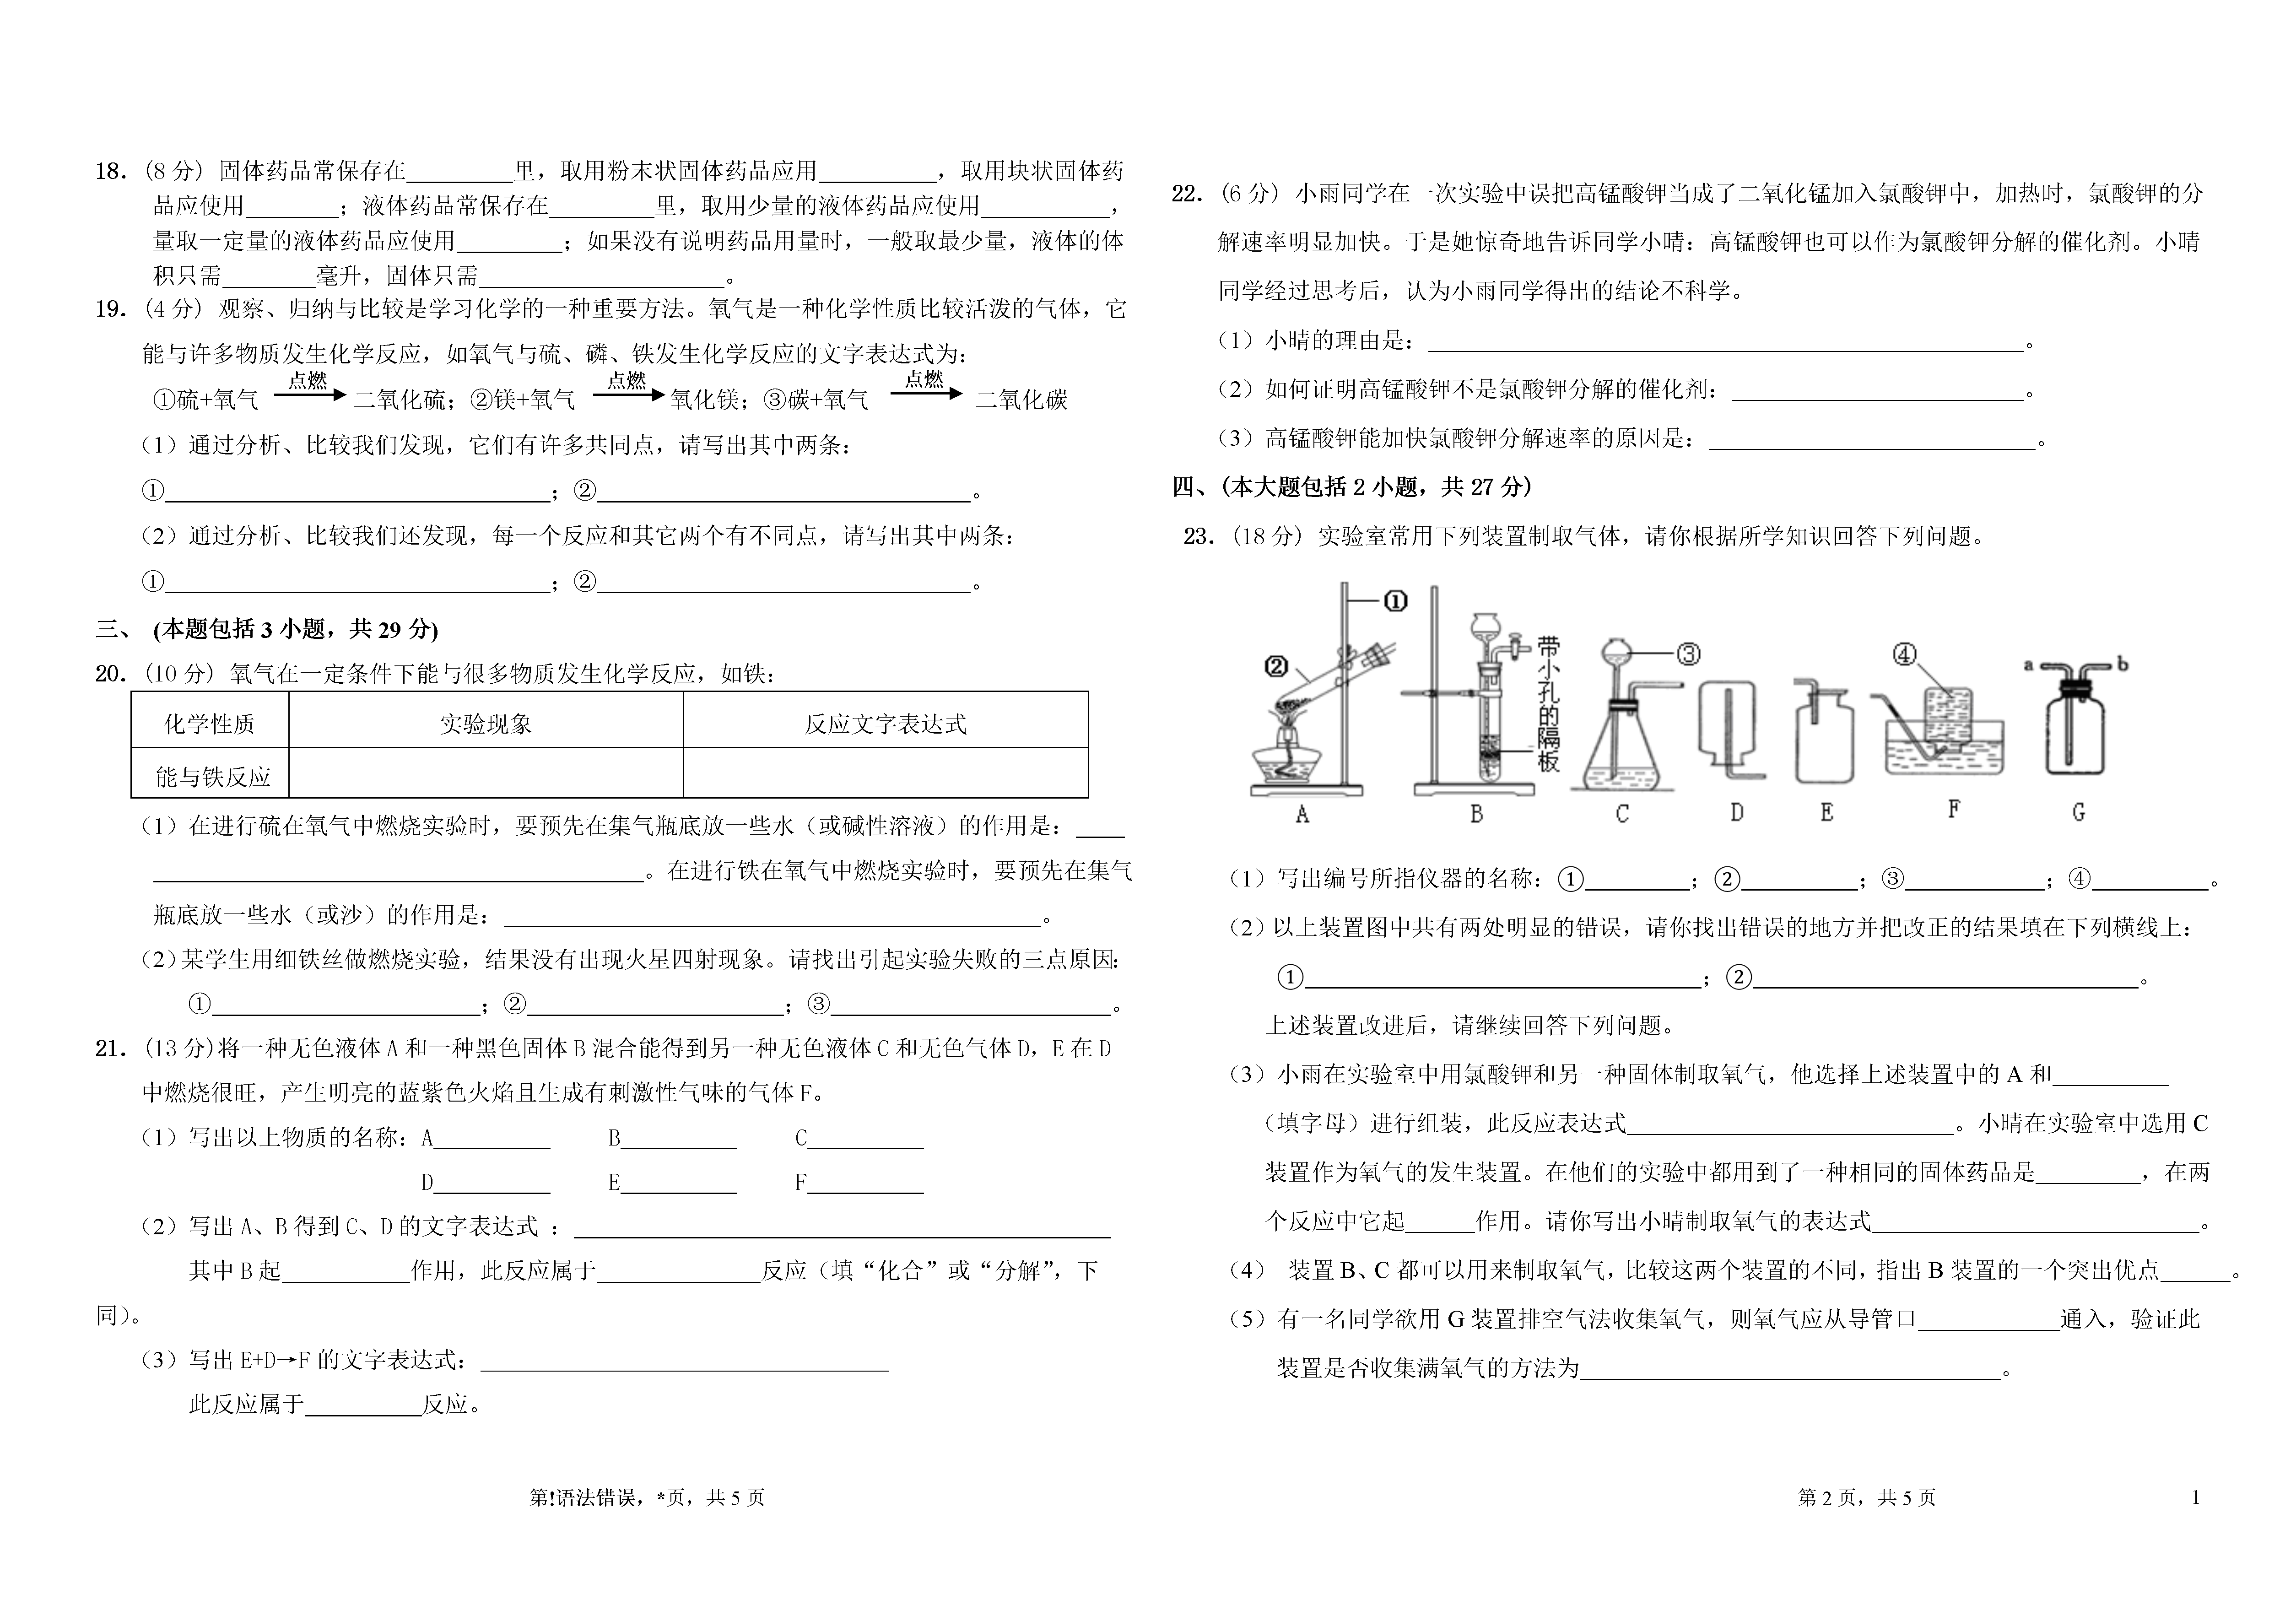 18.(8 分) 固体药品常保存在_________里，取用粉末状固体药品应用__________，取用块状固体药
品应使用________；液体药品常保存在_________里，取用少量的液体药品应使用___________，
量取一定量的液体药品应使用_________；如果没有说明药品用量时，一般取最少量，液体的体
积只需________毫升，固体只需_____________________。
19.(4 分) 观察、归纳与比较是学习化学的一种重要方法。氧气是一种化学性质比较活泼的气体，它
能与许多物质发生化学反应，如氧气与硫、磷、铁发生化学反应的文字表达式为：
点燃 点燃 点燃
①硫+氧气 → 二氧化硫；②镁+氧气 → 氧化镁；③碳+氧气 → 二氧化碳
（1）通过分析、比较我们发现，它们有许多共同点，请写出其中两条：
①_________________________________；②________________________________。
（2）通过分析、比较我们还发现，每一个反应和其它两个有不同点，请写出其中两条：
①_________________________________；②________________________________。
三、 (本题包括 3 小题，共 29 分)
20.(10 分) 氧气在一定条件下能与很多物质发生化学反应，如铁：
化学性质 实验现象 反应文字表达式
能与铁反应
（1）在进行硫在氧气中燃烧实验时，要预先在集气瓶底放一些水（或碱性溶液）的作用是：____
__________________________________________。在进行铁在氧气中燃烧实验时，要预先在集气
瓶底放一些水（或沙）的作用是：______________________________________________。
（2）某学生用细铁丝做燃烧实验，结果没有出现火星四射现象。请找出引起实验失败的三点原因：
①_______________________；②______________________；③________________________。
21.(13 分)将一种无色液体 A 和一种黑色固体 B 混合能得到另一种无色液体 C 和无色气体 D，E 在 D
中燃烧很旺，产生明亮的蓝紫色火焰且生成有刺激性气味的气体 F。
（1）写出以上物质的名称：A__________ B__________ C__________
D__________ E__________ F__________
（2）写出 A、B 得到 C、D 的文字表达式 ：______________________________________________
其中 B 起___________作用，此反应属于______________反应（填“化合”或“分解”，下
同）。
（3）写出 E+D→F 的文字表达式：___________________________________
此反应属于__________反应。
第!语法错误，*页，共 5 页
22.(6 分) 小雨同学在一次实验中误把高锰酸钾当成了二氧化锰加入氯酸钾中，加热时，氯酸钾的分
解速率明显加快。于是她惊奇地告诉同学小晴：高锰酸钾也可以作为氯酸钾分解的催化剂。小晴
同学经过思考后，认为小雨同学得出的结论不科学。
（1）小晴的理由是：___________________________________________________。
（2）如何证明高锰酸钾不是氯酸钾分解的催化剂：_________________________。
（3）高锰酸钾能加快氯酸钾分解速率的原因是：____________________________。
四、(本大题包括 2 小题，共 27 分)
23.(18 分) 实验室常用下列装置制取气体，请你根据所学知识回答下列问题。
① ② 带小孔的隔板 ③ ④ a b
A B C D E F G
（1）写出编号所指仪器的名称：①_________；②__________；③____________；④__________。
（2）以上装置图中共有两处明显的错误，请你找出错误的地方并把改正的结果填在下列横线上：
①__________________________________；②_________________________________。
上述装置改进后，请继续回答下列问题。
（3）小雨在实验室中用氯酸钾和另一种固体制取氧气，他选择上述装置中的 A 和__________
（填字母）进行组装，此反应表达式____________________________。小晴在实验室中选用 C
装置作为氧气的发生装置。在他们的实验中都用到了一种相同的固体药品是_________，在两
个反应中它起______作用。请你写出小晴制取氧气的表达式____________________________。
（4） 装置 B、C 都可以用来制取氧气，比较这两个装置的不同，指出 B 装置的一个突出优点______。
（5）有一名同学欲用 G 装置排空气法收集氧气，则氧气应从导管口____________通入，验证此
装置是否收集满氧气的方法为____________________________________。
第 2 页，共 5 页 1